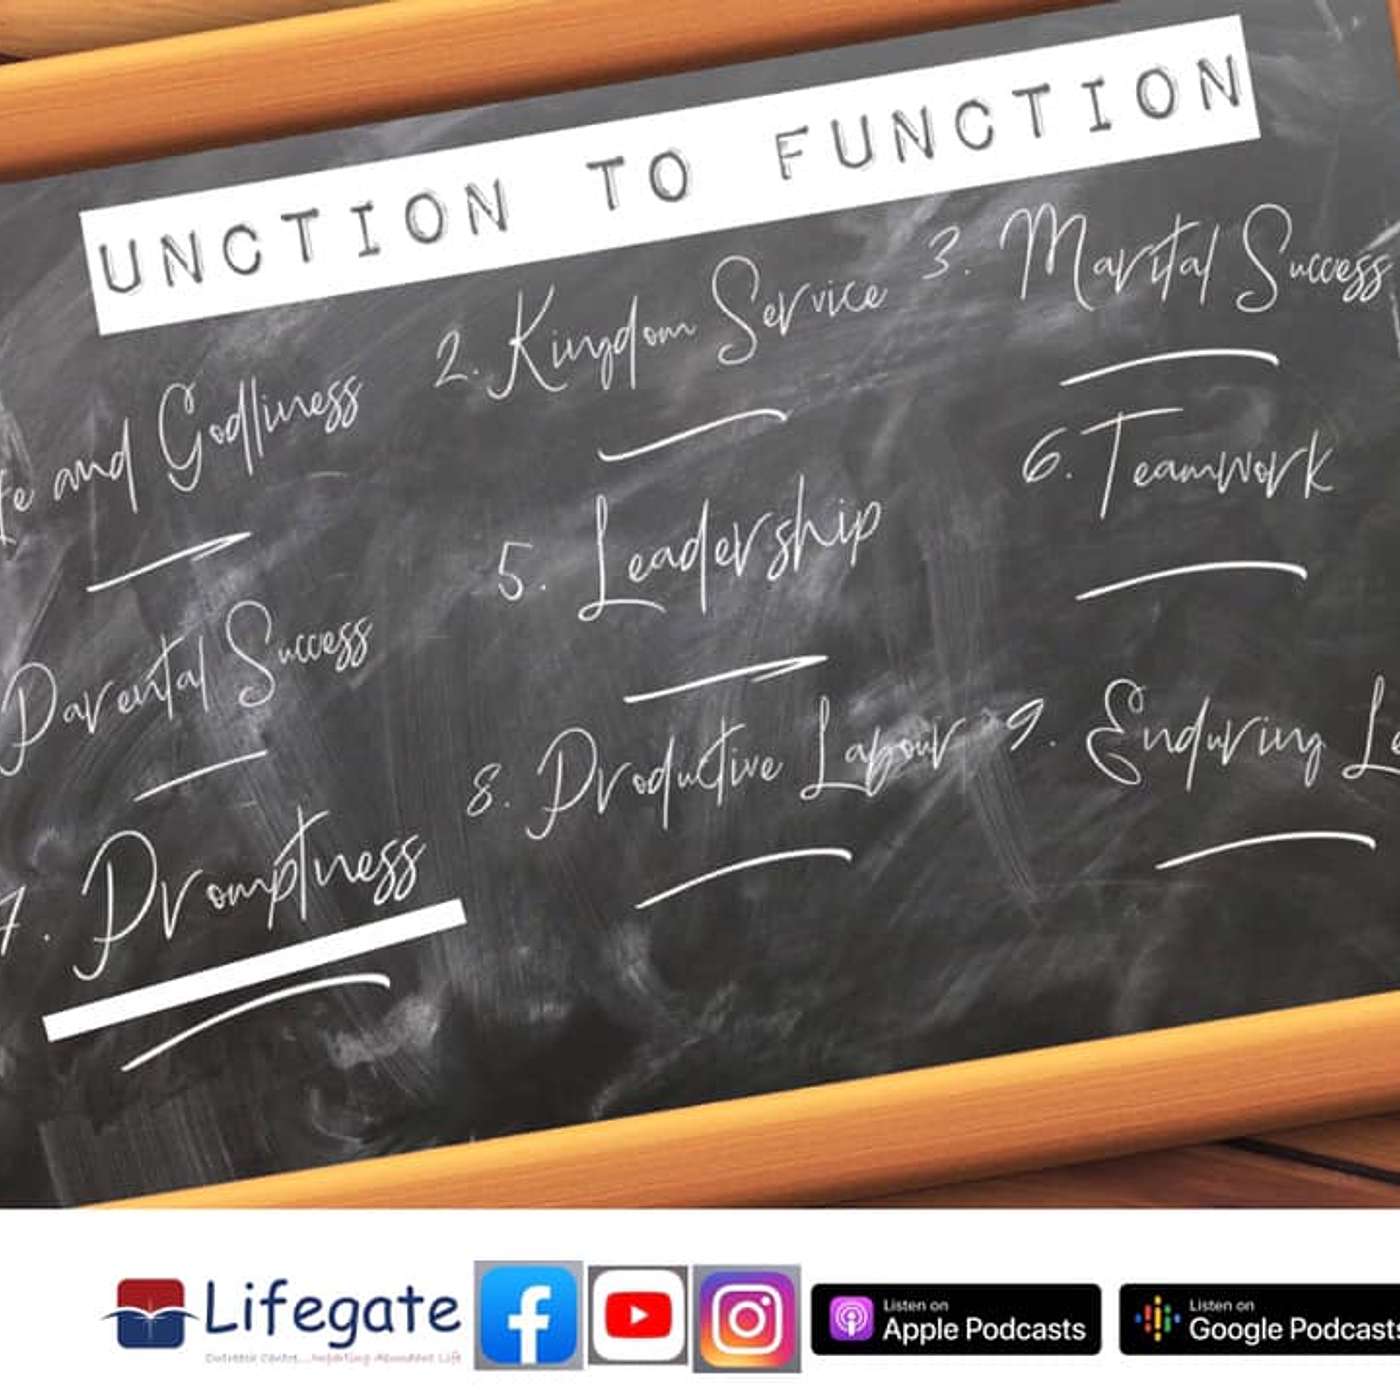 UNCTION TO FUNCTION
and Godliness
2. Kingdom Service
3. Marital Success
Parental Success
5. Leadership
6. Teamwork
7. Promptness
8. Productive Labour
9. Enduring
Lifegate
Outreach Centre...Imparting Abundant Life
Listen on
Apple Podcasts
Listen on
Google Podcasts